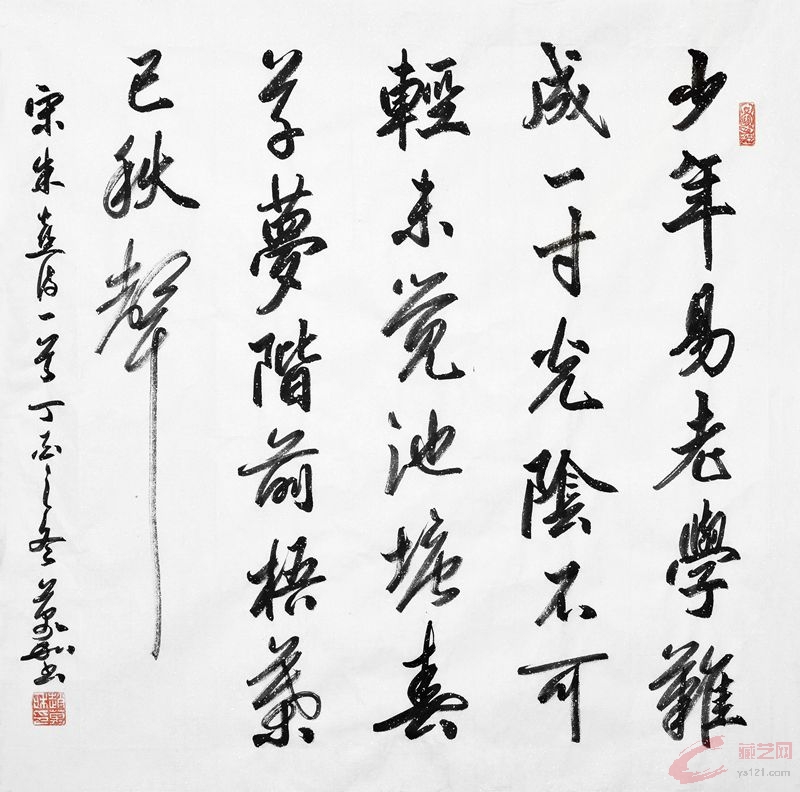 少年易老學難
成一寸光陰不可
輕未觉池塘春
草夢階前梧葉
已秋聲
宋朱熹诗一首丁酉之冬
藏艺网
ya121.com